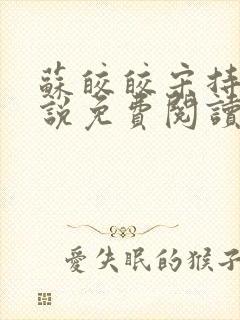 蘇皎皎宋持
說免費閱讀
愛失眠的猴子